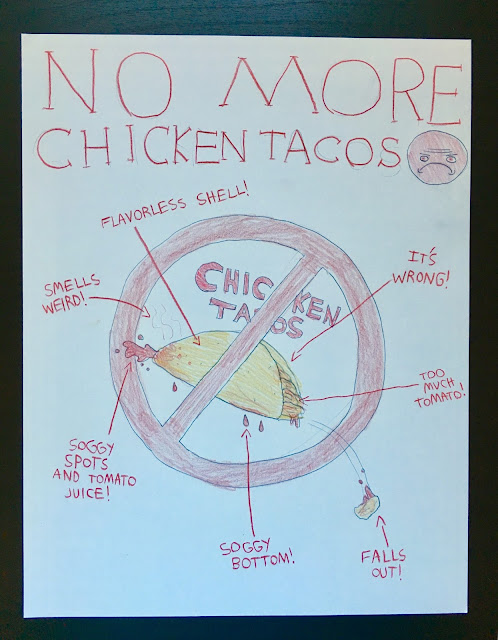 NO MORE
CHICKEN TACOS
FLAVORLESS SHELL!
IT'S
WRONG!
SMELLS
WEIRD!
CHICKEN
TACOS
TOO
MUCH
TOMATO!
SOGGY
SPOTS
AND TOMATO
JUICE!
SOGGY
BOTTOM!
FALLS
OUT!